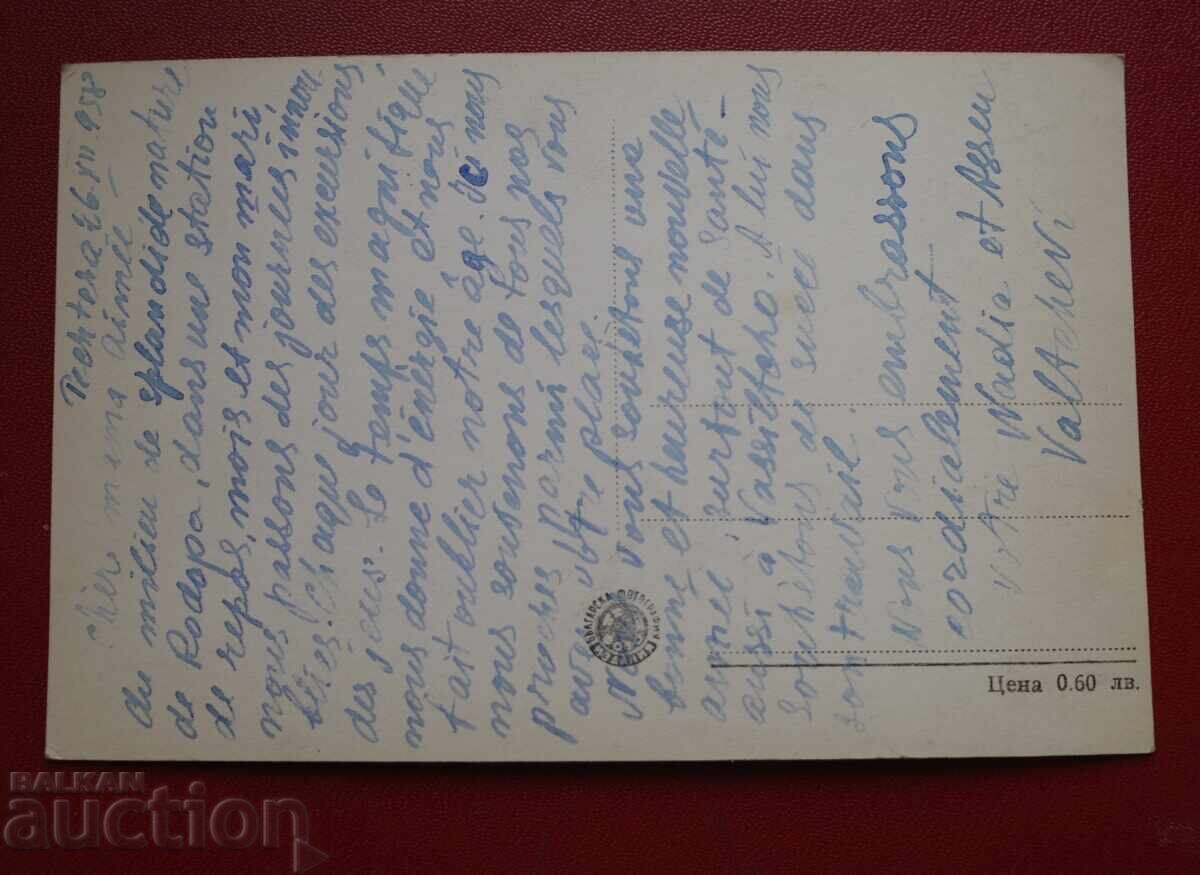 Pechtera 26 XII 958
Chèr mma Aimée
Au milieu de splandide nature
de Rodopa, dans une station
de repos, mois et mon mari
nous passons des journeés inou-
bliés. Chaque jour des excursions
des jodes. Le temps magnifique
nous donne d'énergie et nous
fait oublier notre âge. Ici nous
nous souvenons de tous nos
proches parmi lesquels vous
avez votre place.
Nous vous souhetons une
bonne et heureuse nouvelle
anneé surtout de santé -
aussi à Vassitcho. A lui nous
souhétons de succé dans
son travail
Nous vous embrassons
cordialement
votre Nadia et Assen
Valtchevi
БЪЛГАРСКА ФОТОГРАФИЯ
Цена 0.60 лв.
BALKAN
auction